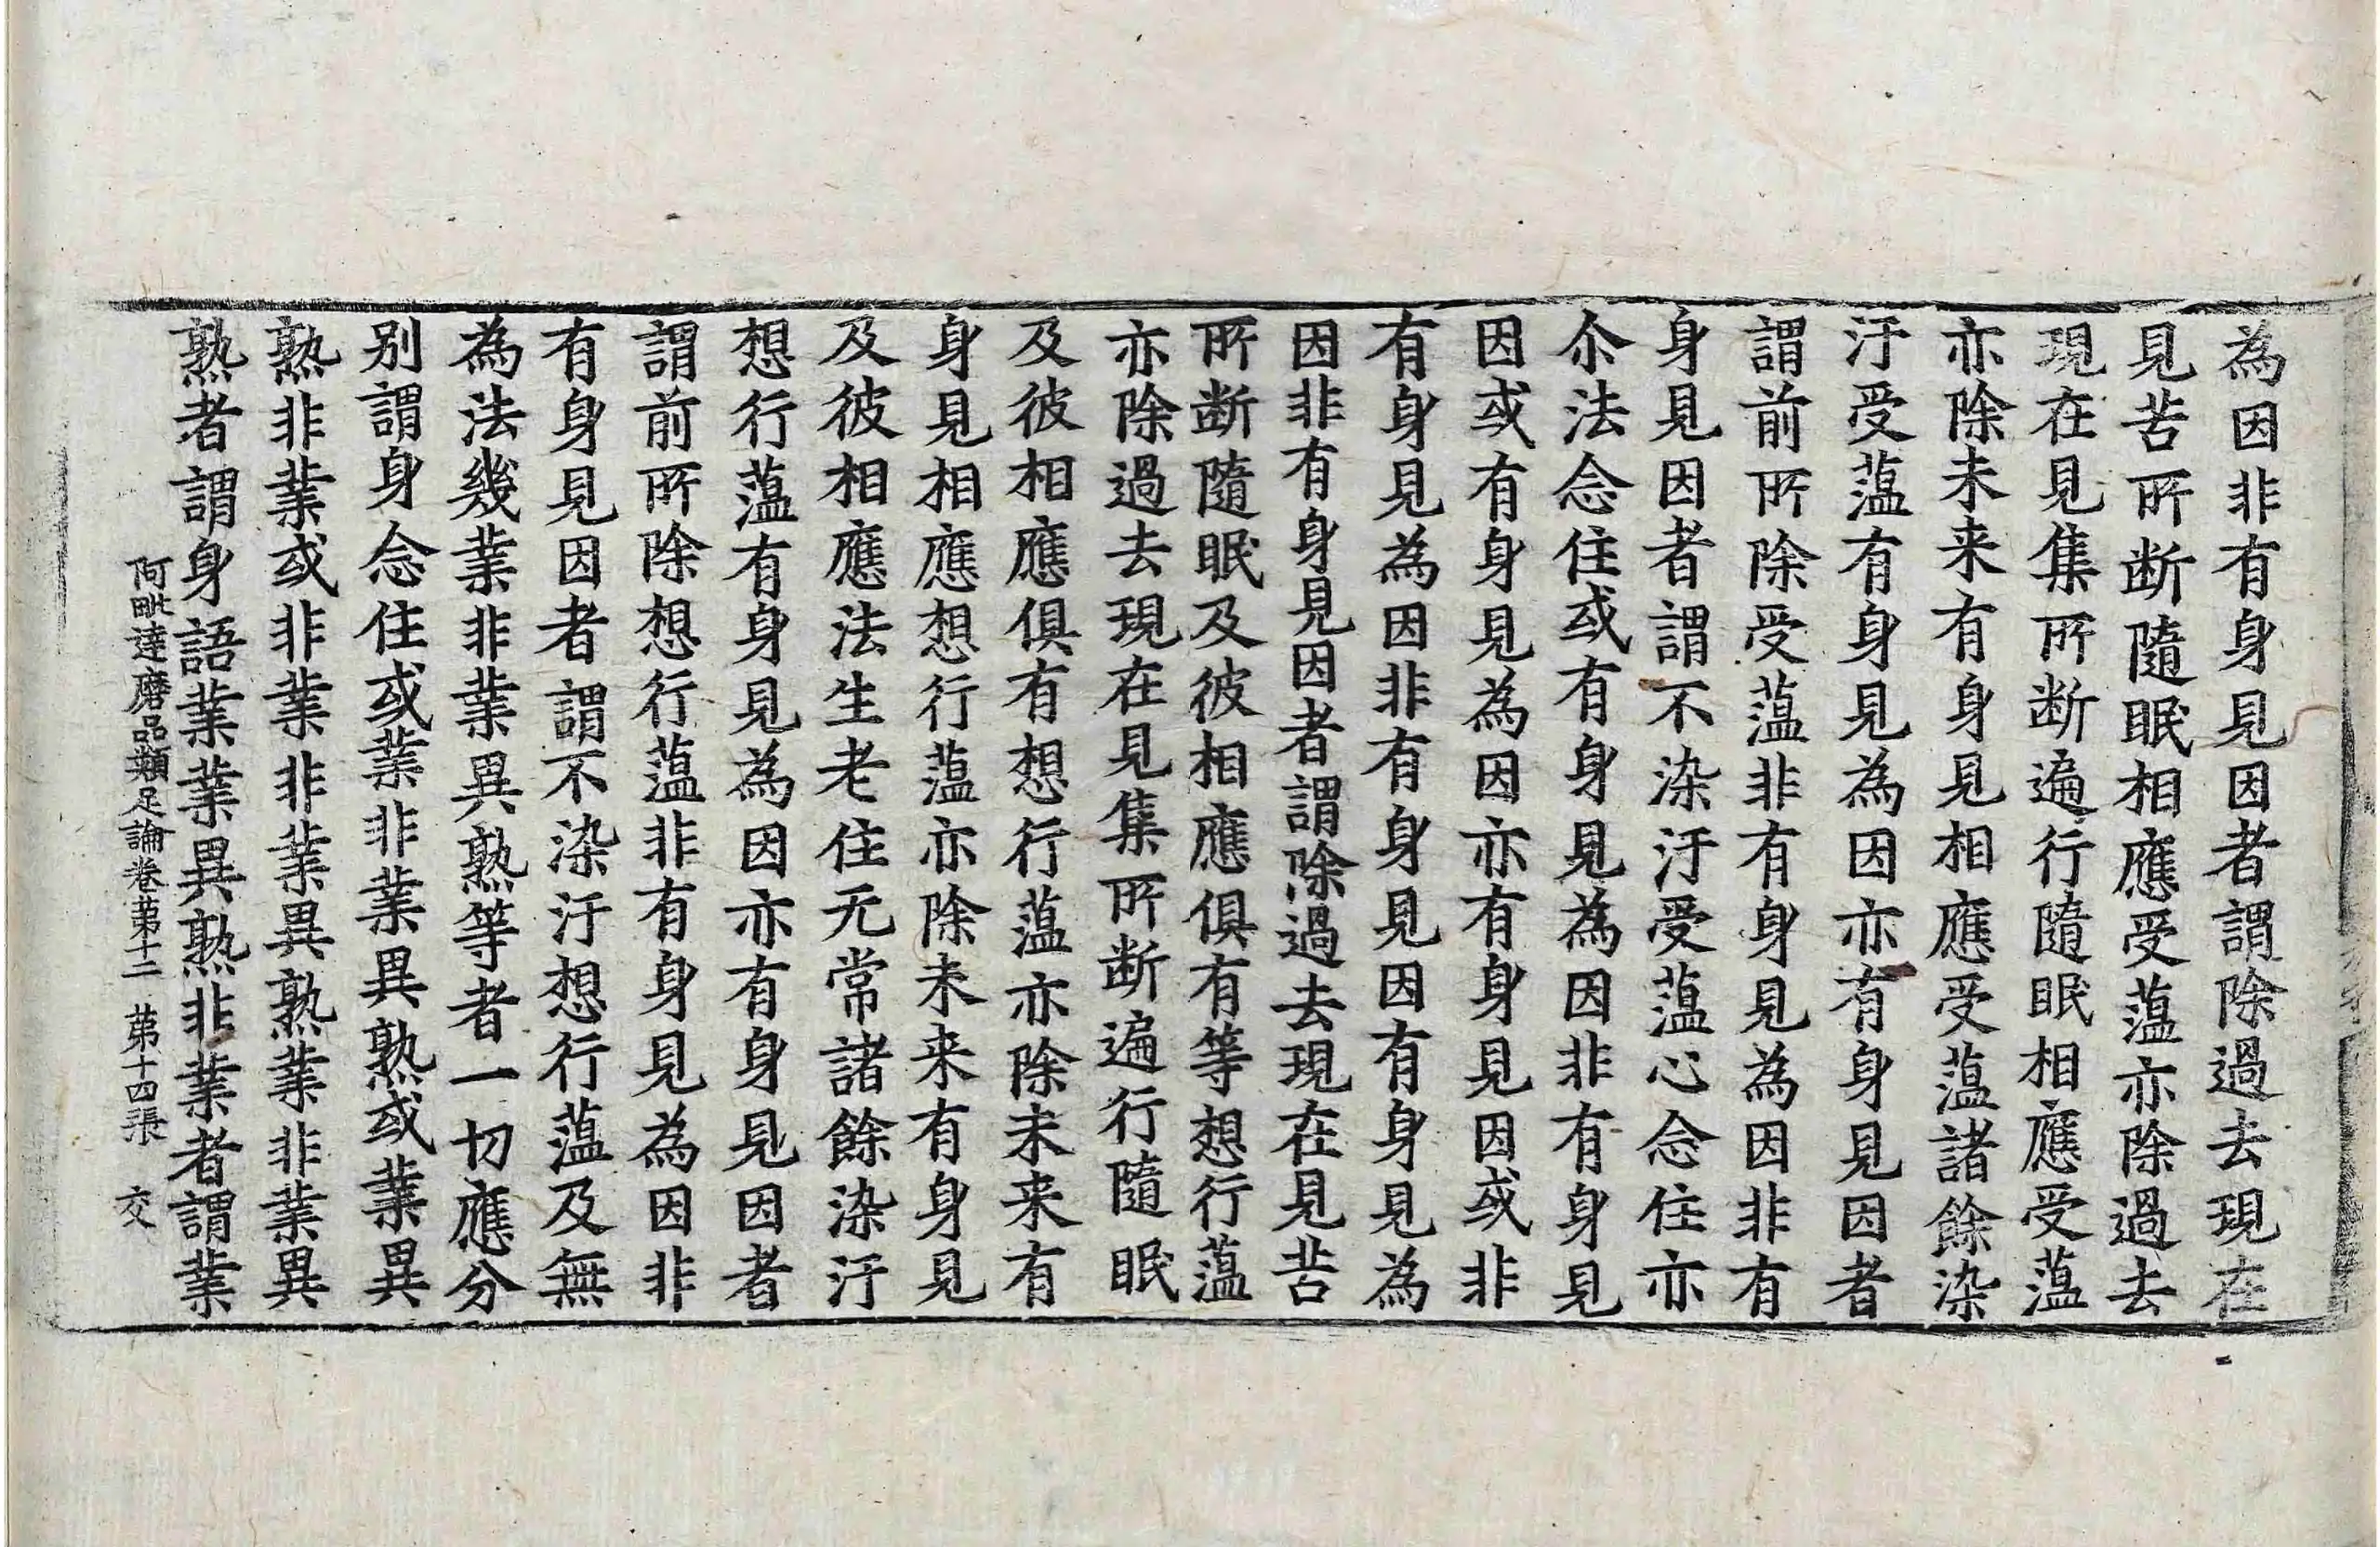 為因非有身見因者謂除過去現在
見苦所断隨眠相應受蕰亦除過去
現在見集所断遍行隨眠相應受蕰
亦除未来有身見相應受蕰諸餘染
汙受蕰有身見為因亦有身見因者
謂前所除受蕰非有身見為因非有
身見因者謂不染汙受蕰心念住亦
尒法念住或有身見為因非有身見
因或有身見為因亦有身見因或非
有身見為因非有身見因有身見為
因非有身見因者謂除過去現在見苦
所断隨眠及彼相應俱有等想行蕰
亦除過去現在見集所断遍行隨眠
及彼相應俱有想行蕰亦除未来有
身見相應想行蕰亦除未来有身見
及彼相應法生老住无常諸餘染汙
想行蕰有身見為因亦有身見因者
謂前所除想行蕰非有身見為因非
有身見因者謂不染汙想行蕰及無
為法幾業非業異熟等者一切應分
别謂身念住或業非業異熟或業異
熟非業或非業非業異熟業非業異
熟者謂身語業業異熟非業者謂業
阿毗達磨品類足論卷苐十二 苐十四張 交